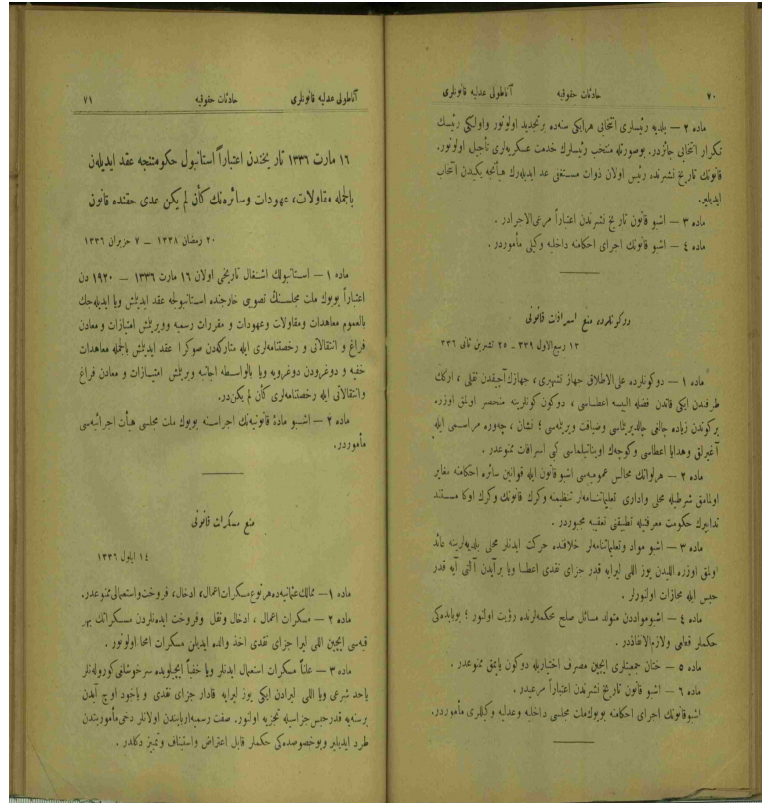 ٧٠ حادثات حقوقيه آناطولى عدليه قانونلرى
ماده ٢ — بلديه رئيسلرى انتخابى هر ايكى سنه ده بر تجديد اولونور واولكى رئيسك
تكرار انتخابى جائزدر. بوصورتله منتخب رئيسلرك خدمت عسكريه لرى تأجيل اولونور.
قانونك تاريخ نشرنده رئيس اولان ذوات مستعفى عد ايديله رك هيأتجه يكيدن انتخاب
ايديلير.
ماده ٣ — اشبو قانون تاريخ نشرندن اعتباراً مرعى الاجرادر .
ماده ٤ — اشبو قانونك اجراى احكامنه داخليه وكيلى مأموردر .
دوكونلرده منع اسرافات قانونى
١٣ ربيع الاول ٣٣٩ ـ ٢٥ تشرين ثانى ٣٣٦
ماده ١ — دوكونلرده على الاطلاق جهاز تشهيرى ، جهازك آچيقدن نقلى ، اركك
طرفندن ايكى قاتدن فضله البسه اعطاسى ، دوكون كونلرينه منحصر اولمق اوزره
بركوندن زياده چالغى چالديريلماسى وضيافت ويريلمه سى ؛ نشان ، چه وره مراسمى ايله
آغيرلق وهدايا اعطاسى وكوچك اويناتيلماسى كبى اسرافات ممنوعدر .
ماده ٢ — هر لوانك مجالس عموميه سى اشبو قانون ايله قوانين سائره احكامنه مغاير
اولمامق شرطيله محلى وادارى تعليماتنامه لر تنظيمنه وكرك قانونك وكرك اوكا مستند
تدابيرك حكومت معرفتيله تطبيقنى تعقيبه مجبوردر .
ماده ٣ — اشبو مواد وتعليماتنامه لر خلافنده حركت ايدنلر محلى بلديه لرينه عائد
اولمق اوزره اللیدن يوز اللى ليرايه قدر جزاى نقدى اعطا ويا بر آيدن آلتى آيه قدر
حبس ايله مجازات اولنورلر .
ماده ٤ — اشبو موادن متولد مسائل صلح محكمه لرنده رؤيت اولنور ؛ بوبابده كى
حكملر قطعى ولازم الانفاذدر .
ماده ٥ — ختان جمعيتلرى ايچين مصرف اختياريله دوكون ياپمق ممنوعدر .
ماده ٦ — اشبو قانون تاريخ نشرندن اعتباراً مرعيدر .
اشبو قانونك اجراى احكامنه بويوك ملت مجلسى داخليه وعدليه وكيللرى مأموردر.
آناطولى عدليه قانونلرى حادثات حقوقيه ٧١
١٦ مارت ١٣٣٦ تاريخندن اعتباراً استانبول حكومتنجه عقد ايديلن
بالجمله مقاولات، عهودات وسائره نك كأن لم يكن عدى حقنده قانون
٢٠ رمضان ١٣٣٨ — ٧ حزيران ١٣٣٦
ماده ١ — استانبولك اشغال تاريخى اولان ١٦ مارت ١٣٣٦ — ١٩٢٠ دن
اعتباراً بويوك ملت مجلسنك تصويبى خارجنده استانبولجه عقد ايديلمش ويا ايديله جك
بالعموم معاهدات ومقاولات وعهودات و مقررات رسميه وويريلمش امتيازات و معادن
فراغ و انتقالاتى و رخصتنامه لرى ايله متاركه دن صوكرا عقد ايديلمش بالجمله معاهدات
خفيه و دوغرودن دوغرويه ويا بالواسطه اجانبه ويريلمش امتيازات و معادن فراغ
وانتقالاتى ايله رخصتنامه لرى كأن لم يكن در.
ماده ٢ — اشبو مادهٔ قانونيه نك اجراسنه بويوك ملت مجلسى هيأت اجرائيه سى
مأموردر.
منع مسكرات قانونى
١٤ ايلول ١٣٣٦
ماده ١ — ممالك عثمانيه ده هر نوع مسكرات اعمال، ادخال، فروخت واستعمالى ممنوعدر.
ماده ٢ — مسكرات اعمال ، ادخال ونقل وفروخت ايده نلردن مسكراتك بهر
قيه سى ايچين اللى ليرا جزاى نقدى اخذ والده ايديلن مسكرات امحا اولونور .
ماده ٣ — علناً مسكرات استعمال ايدنلر ويا خفياً ايچيلوبده سرخوشلغى كوروله نلر
ياحد شرعى ويا اللى ليرادن ايكى يوز ليرايه قادار جزاى نقدى و ياخود اوچ آيدن
بر سنه يه قدر حبس جزاسيله تجزيه اولنور. صفت رسميه اربابندن اولانلر دخى مأموريتندن
طرد ايديلير وبو خصوصده كى حكملر قابل اعتراض واستيناف وتمييز دكلدر .